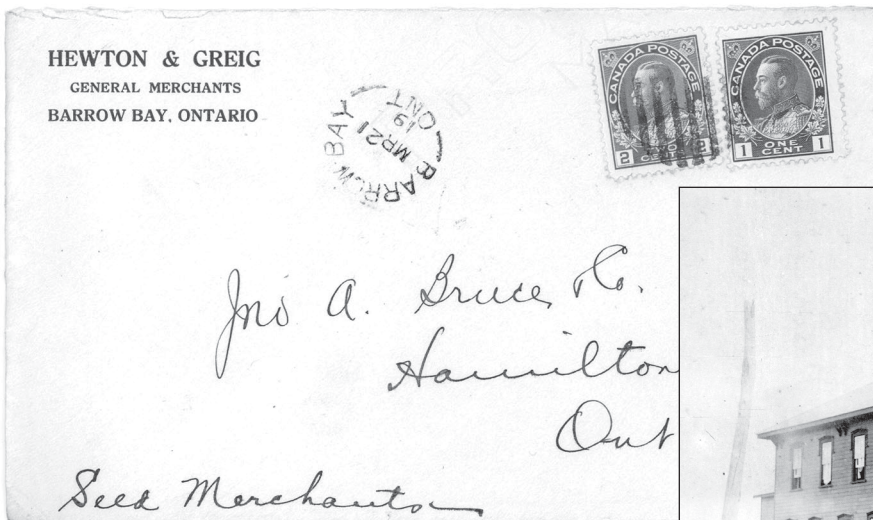 HEWTON & GREIG
GENERAL MERCHANTS
BARROW BAY, ONTARIO
BARROW BAY
MR 21
19
ONT
CANADA POSTAGE
2 CENTS 2
CANADA POSTAGE
1 ONE CENT 1
Jno A. Bruce & Co.
Hamilton
Ont
Seed Merchants